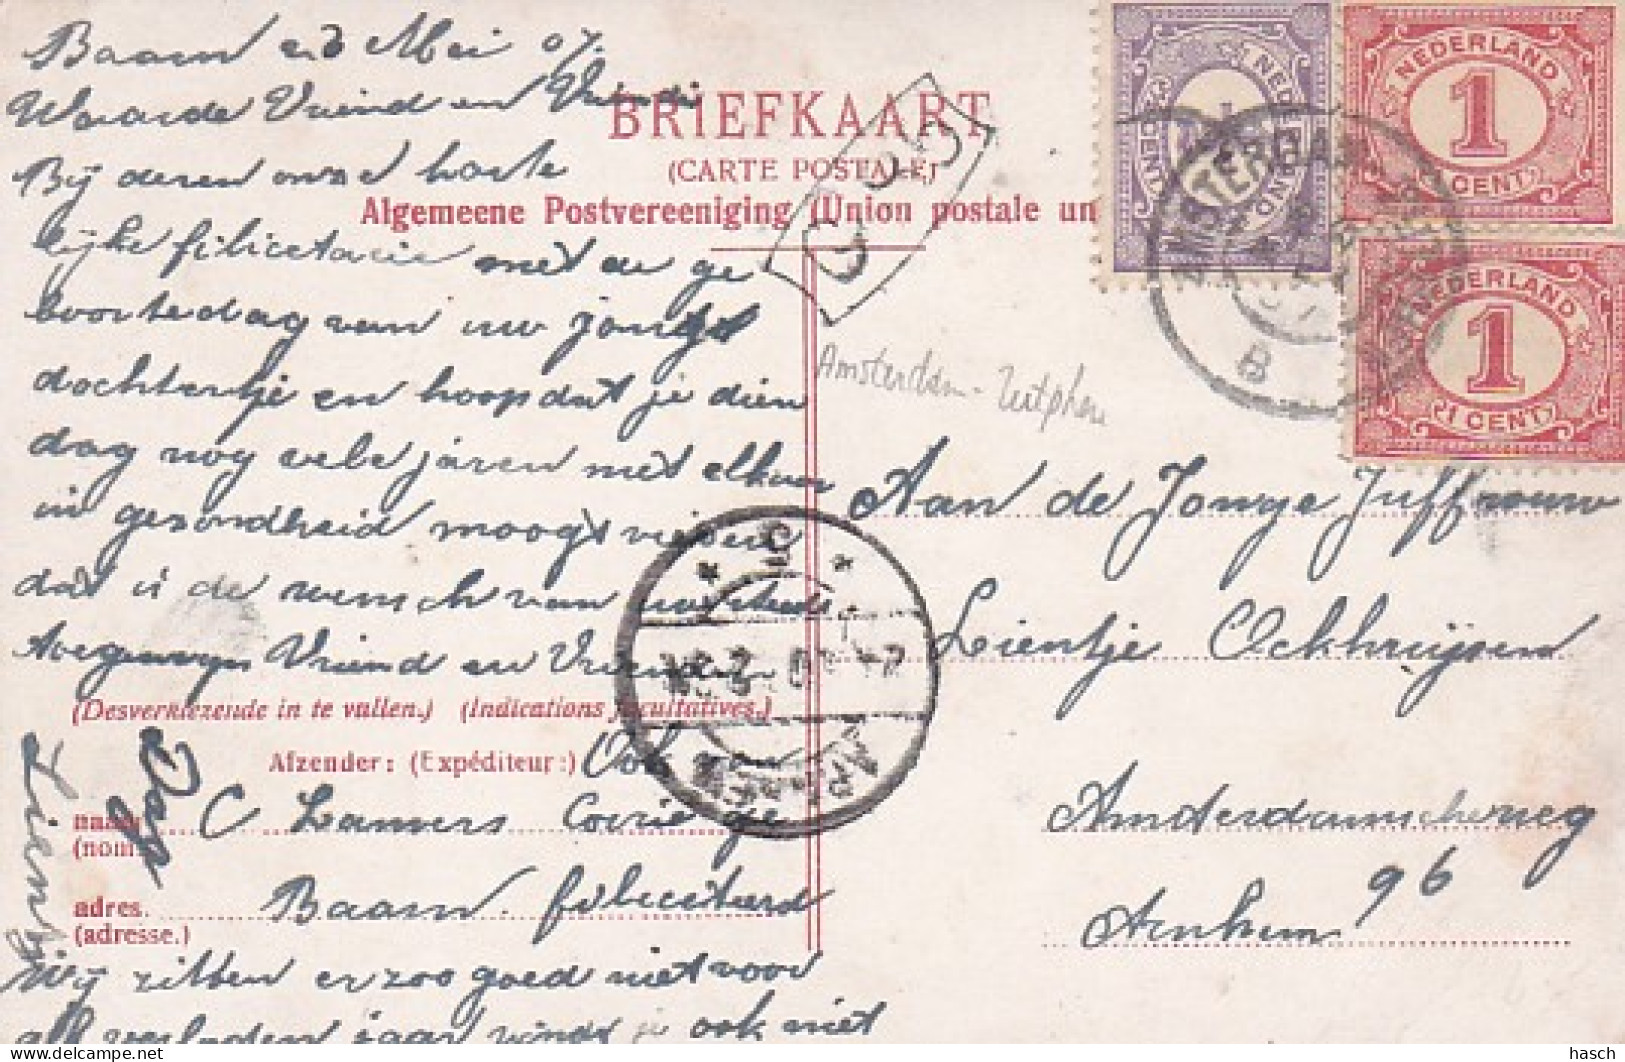 Baarn 23 Mei 07.
Waarde Vriend en Vriendi
BRIEFKAART
(CARTE POSTALE)
Algemeene Postvereeniging (Union postale un
By deren onze harte
lijke filicetacie met de ge
boortedag van uw jongst
dochtertje en hoop dat je dien
dag nog vele jaren met elkaar
in gesondheid moogt vieren
dat is de wensch van
Vriend en
(Desverkiezende in te vullen.) (Indications facultatives.)
Afzender: (Expéditeur:) Ook
naam C Lamers Corrie
(nom.)
adres. Baarn. filiciteerd
(adresse.)
Wij zitten er zoo goed niet voor
als verleden jaar vindt je ook niet
Dag
Lientje
NEDERLAND
1
1 CENT
NEDERLAND
1
1 CENT
AMSTERDAM
B
Amsterdam - Zutphen
Aan de Jonge Juffrouw
Lientje Ockhuijsen
Amsterdamscheweg
96
Arnhem
* C *
ARNHEM
hasch